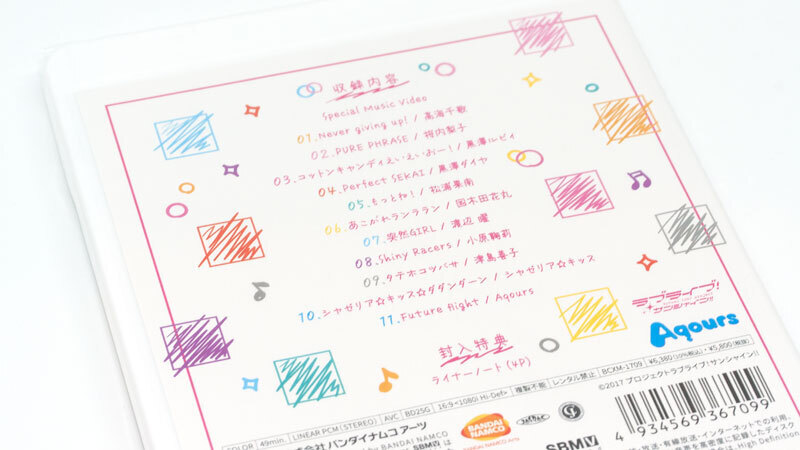 収録内容
Special Music Video
01.Never giving up! / 高海千歌
02.PURE PHRASE / 桜内梨子
03.コットンキャンディえいえいおー! / 黒澤ルビィ
04.Perfect SEKAI / 黒澤ダイヤ
05.もっとね! / 松浦果南
06.あこがれランララン / 国木田花丸
07.突然GIRL / 渡辺 曜
08.Shiny Racers / 小原鞠莉
09.タテホコツバサ / 津島善子
10.シャゼリア☆キッス☆ダダンダーン / シャゼリア☆キッス
11.Future flight / Aqours
封入特典
ライナーノート(4P)
ラブライブ!
サンシャイン!!
Aqours
COLOR / 49min. / LINEAR PCM(STEREO) / AVC / BD25G / 16:9<1080i Hi-Def> / 複製不能 / レンタル禁止 / BCXM-1709 / ¥6,380(10%税込)・¥5,800(税抜)
©2017 プロジェクトラブライブ!サンシャイン!!
会社 バンダイナムコ アーツ
by BANDAI NAMCO
BANDAI
NAMCO
SBM
4 934569 367099
放送・有線放送・インターネットでの利用、
高密度に記録したディスク
High Definition